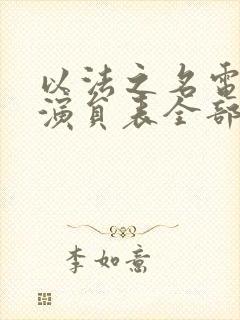 以法之名电
演员表全部
李如意